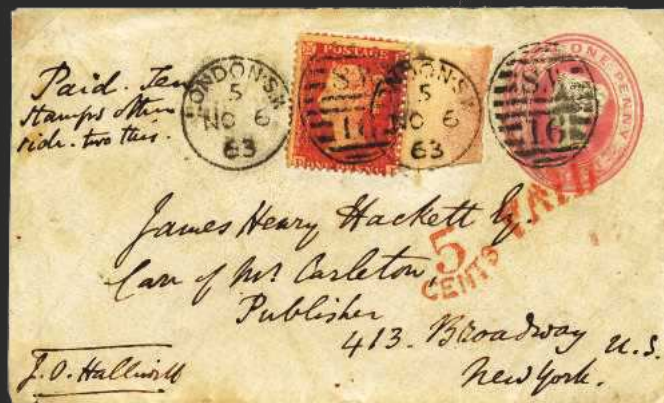 Paid. Ten
stamps other
side. two this.
LONDON·S.W
5
NO 6
63
POSTAGE
16
LONDON·S.W
5
NO 6
63
16
ONE PENNY
PAID
5
CENTS
James Henry Hackett Eq.
Care of Mr. Carleton,
Publisher
413. Broadway U.S.
New York.
J. O. Halliwell